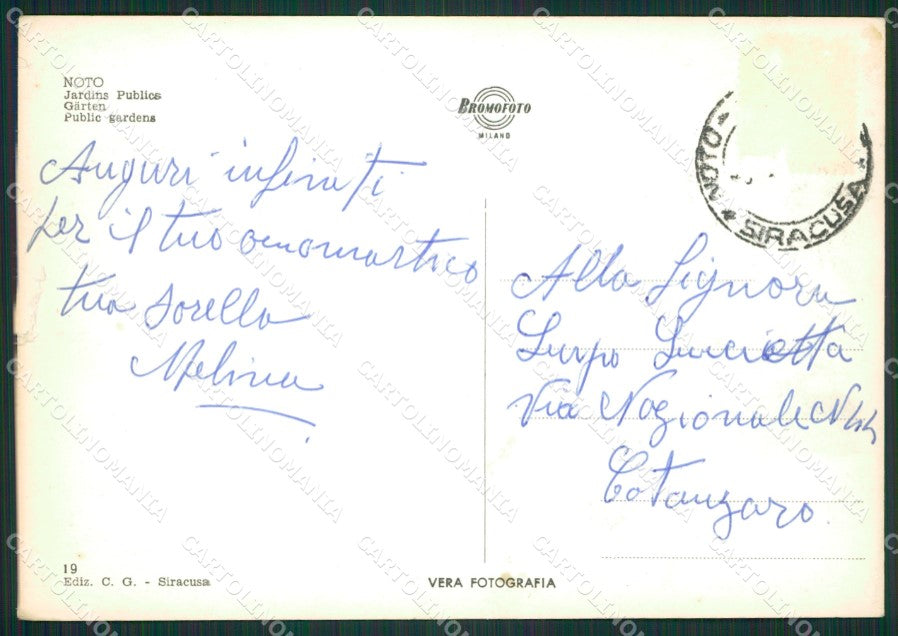 NOTO
Jardins Publics
Gärten
Public gardens
BROMOFOTO
MILANO
NOTO * SIRACUSA *
Auguri infiniti
per il tuo onomastico
tua sorella
Melina
Alla Signora
Lucietta
Via Nazionale N 44
Catanzaro
19
Ediz. C. G. - Siracusa
VERA FOTOGRAFIA
CARTOLINOMANIA